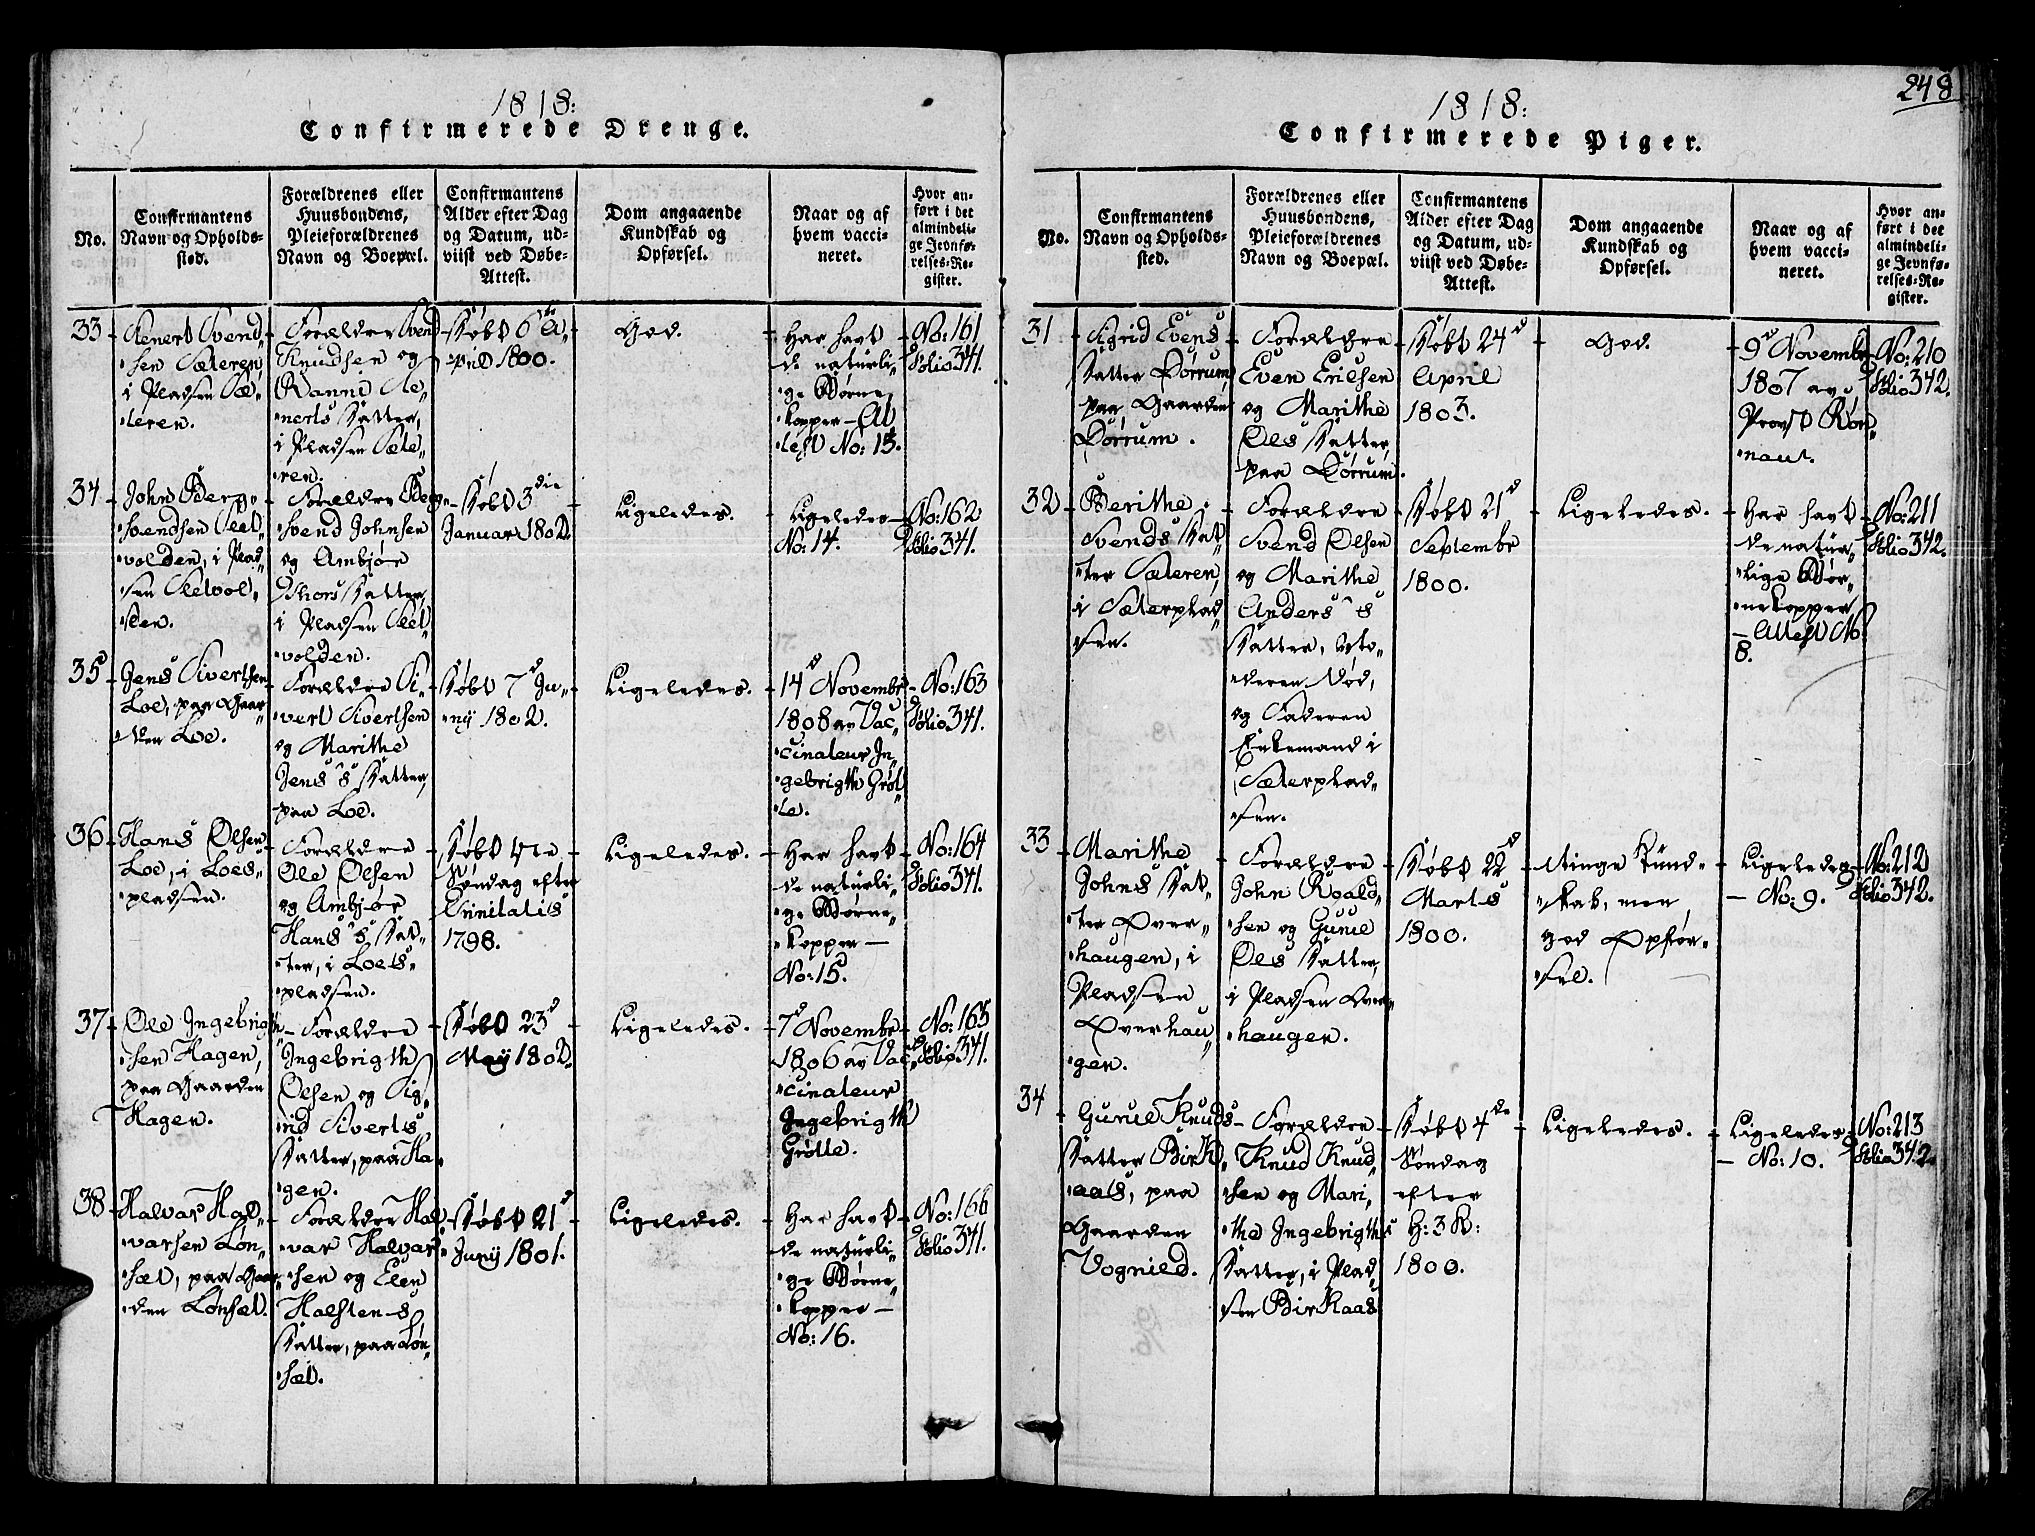 1818:
Confirmerede Drenge.
No.
Confirmantens
Navn og Opholds-
sted.
Forældrenes eller
Huusbondens,
Pleieforældrenes
Navn og Boepæl.
Confirmantens
Alder efter Dag
og Datum, ud-
viist ved Døbe-
Attest.
Dom angaaende
Kundskab og
Opførsel.
Naar og af
hvem vacci-
neret.
Hvor an-
ført i det
almindeli-
ge Jevnfø-
relses-Re-
gister.
33
Senert Svend-
sen Sæteren
i Pladsen Sæ-
teren.
Forældre Svend
Knudsen og
Ranni Se-
nerts Datter,
i Pladsen Sæte-
ren.
Døbt 6te A-
pril 1800.
God.
Har havt
de naturli-
ge Børne-
kopper - At
test No: 13.
No: 161
Folio 341.
34
John Berg-
svendsen Sæl-
volden, i Plad-
sen Sælvol-
den.
Forældre Berg-
svend Johnsen
og Ambjør
Thors Datter,
i Pladsen Sæl-
volden.
Døbt 3die
Januar 1802.
Ligeledes.
Ligeledes -
No: 14.
No: 162
Folio 341.
35
Jens Sivertsen
Loe, paa Gaar-
den Loe.
Forældre Si-
vert Sivertsen
og Marithe
Jens's Datter,
paa Loe.
Døbt 7d Ju-
nij 1802.
Ligeledes.
14d Novembr
1808 av Vac-
cinateur In-
gebrigth Grøt-
te.
No: 163
Folio 341.
36
Hans Olsen
Loe, i Loes-
pladsen.
Forældre
Ole Olsen
og Ambjør
Hans's Dat-
ter, i Loes-
pladsen.
Døbt 4de
Søndag efter
Trinitatis
1798.
Ligeledes.
Har havt
de naturli-
ge Børne-
kopper -
No: 15.
No: 164
Folio 341.
37
Ole Ingebrigth-
sen Hagen,
paa Gaarden
Hagen.
Forældre
Ingebrigth
Olsen og Sig-
rid Siverts
Datter, paa Ha-
gen.
Døbt 23d
Maij 1802.
Ligeledes.
7d Novembr
1806 av Vac-
cinateur
Ingebrigth
Grøtte.
No: 165
Folio 341.
38
Halvar Hal-
varsen Løn-
sæt, paa Gaar-
den Lønsæt.
Forældre Hal-
var Halvar-
sen og Elen
Halsten-s
Datter, paa Løn-
sæt.
Døbt 21d
Junij 1801.
Ligeledes.
Har havt
de naturli-
ge Børne-
kopper -
No: 16.
No: 166
Folio 341.
248
1818:
Confirmerede Piger.
No.
Confirmantens
Navn og Opholds-
sted.
Forældrenes eller
Huusbondens,
Pleieforældrenes
Navn og Boepæl.
Confirmantens
Alder efter Dag
og Datum, ud-
viist ved Døbe-
Attest.
Dom angaaende
Kundskab og
Opførsel.
Naar og af
hvem vacci-
neret.
Hvor an-
ført i det
almindeli-
ge Jevnfø-
relses-Re-
gister.
31
Sigrid Evens
Datter Dørrum
paa Gaarden
Dørrum.
Forældre
Even Ericsen
og Marithe
Ols Datter,
paa Dørrum.
Døbt 24d
April
1803.
God.
9d Novembr
1807 av
Provst Røn-
nau.
No: 210
Folio 342.
32
Berithe
Svends Dat-
ter Sæteren,
i Sæterplad-
sen.
Forældre
Svend Olsen
og Marithe
Anders's
Datter, Mo-
deren død,
og Faderen
Enkemand i
Sæterplad-
sen.
Døbt 21d
Septembr
1800.
Ligeledes.
Har havt
de natur-
lige Bør-
nekopper
- Attest No:
8.
No: 211
Folio 342.
33
Marithe
Johns Dat-
ter Over-
haugen, i
Pladsen
Overhau-
gen.
Forældre
John Roald-
sen og Gurue
Ols Datter,
i Pladsen Over-
haugen.
Døbt 22d
Marts
1800.
Ringe Kund-
skab, men
god Opfør-
sel.
Ligeledes
- No: 9.
No: 212
Folio 342.
34
Gurue Knuds
Datter Birk-
aas, paa
Gaarden
Vognild.
Forældre
Knud Knud-
sen og Mari-
the Ingebrigths
Datter, i Plad-
sen Birkaas
Døbt 4de
Søndag
efter
H: 3 K:
1800.
Ligeledes.
Ligeledes
- No: 10.
No: 213
Folio 342.